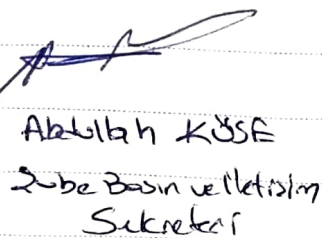 Abdullah KÖSE
Şube Basın ve İletişim
Sekreteri